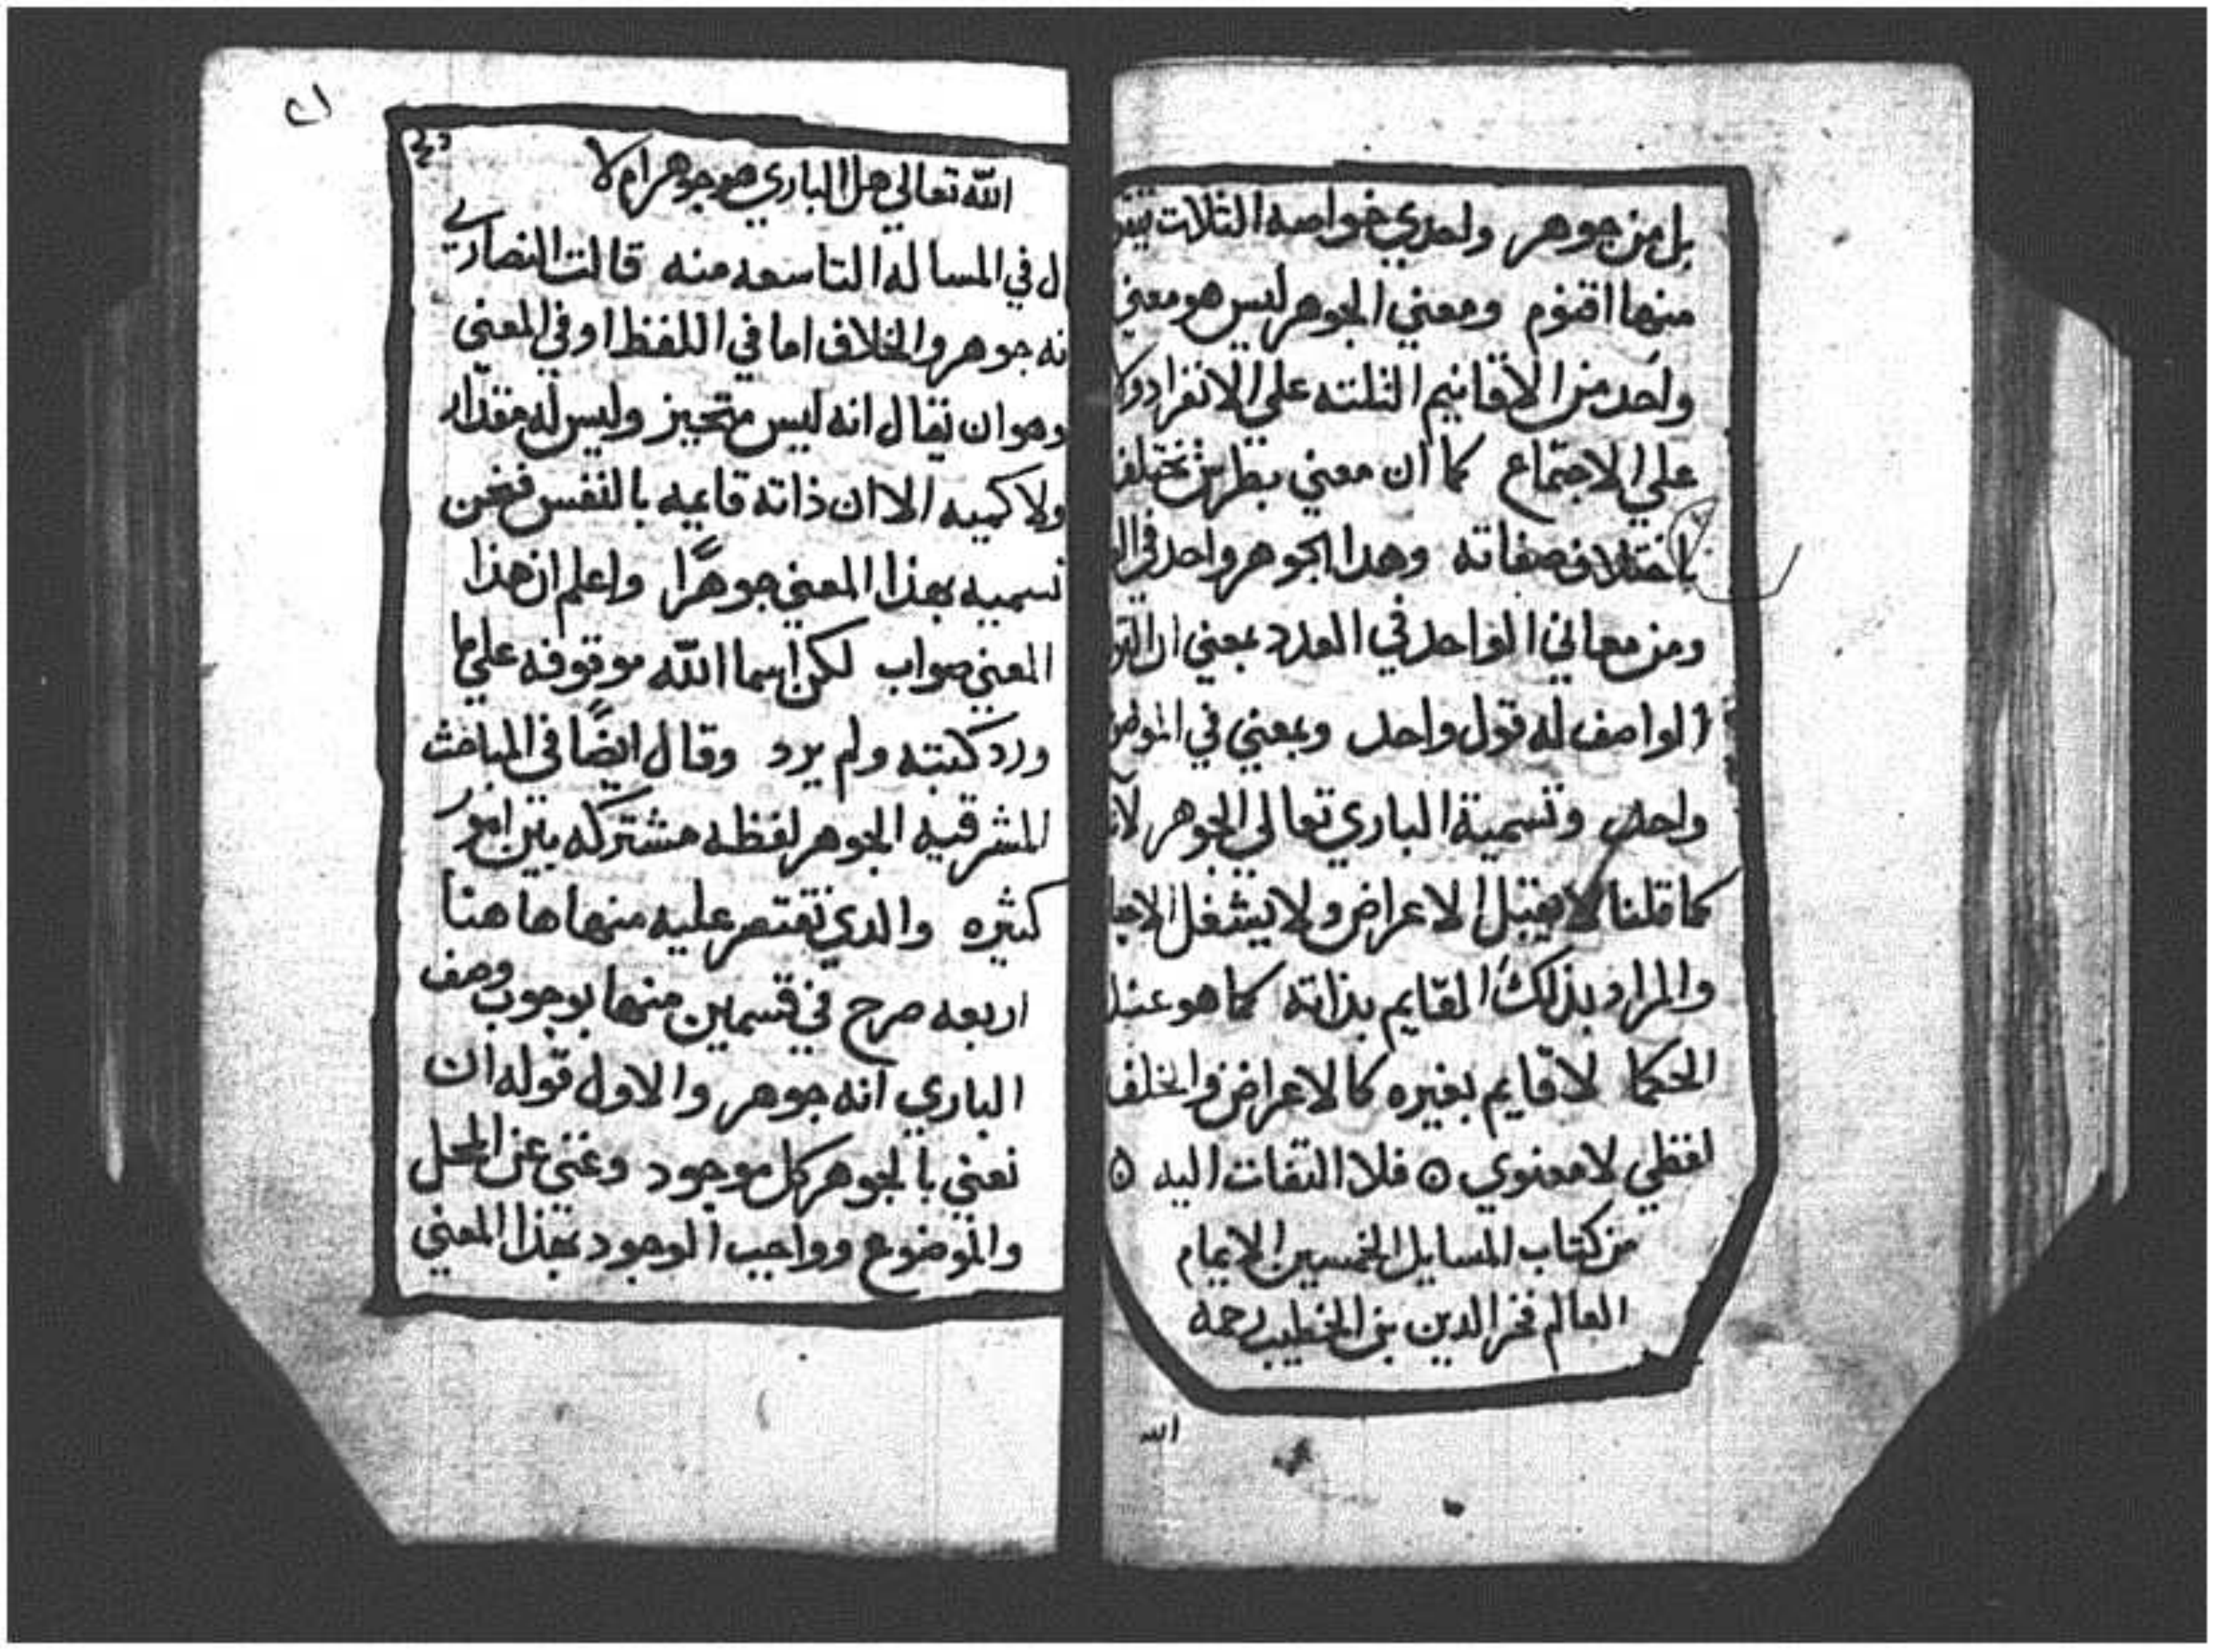 بل من جوهر واحد ذي خواصه الثلاث
منها اقنوم ومعني الجوهر ليس هو معني
واحد من الاقانيم الثلثه علي الانفراد ولا
علي الاجتماع كما ان معني بطرس تختلف
باختلاف صفاته وهدا الجوهر واحد في
ومن معاني الواحد في العدد بمعني ان
الواصف له قول واحد وبمعني في الموضو
واحد وتسمية الباري تعالي الجوهر لانه
كما قلنا لا يقبل الاعراض ولا يشغل الاحيا
والمراد بذلك القايم بذاته كما هو عند
الحكما لا قايم بغيره كالاعراض والخلف
لفظي لا معنوي ٥ فلا التفات اليه ٥
من كتاب المسايل الخمسين الايمام
العالم فخر الدين بن الخطيب رحمه
الله
٢١
الله تعالي هل الباري هو جوهر ام لا
ل في المساله التاسعه منه قالت النصاري
نه جوهر والخلاف اما في اللفظ او في المعني
وهو ان نقال انه ليس متحيز وليس له مقدار
ولا كميه الا ان ذاته قايمه بالنفس فنحن
نسميه بهذا المعني جوهرًا واعلم ان هذا
المعني صواب لكن اسما الله موقوفه علي ما
ورد كتبته ولم يرد وقال ايضًا في المباحث
المشرقيه الجوهر لفظه مشتركه بين امور
كثيره والدي نقتصر عليه منها ها هنا
اربعه صرح في قسمين منها بوجوب وصف
الباري انه جوهر والاول قوله ان
نعني بالجوهر كل موجود وغني عن المحل
والموضوع وواجب الوجود بهذا المعني